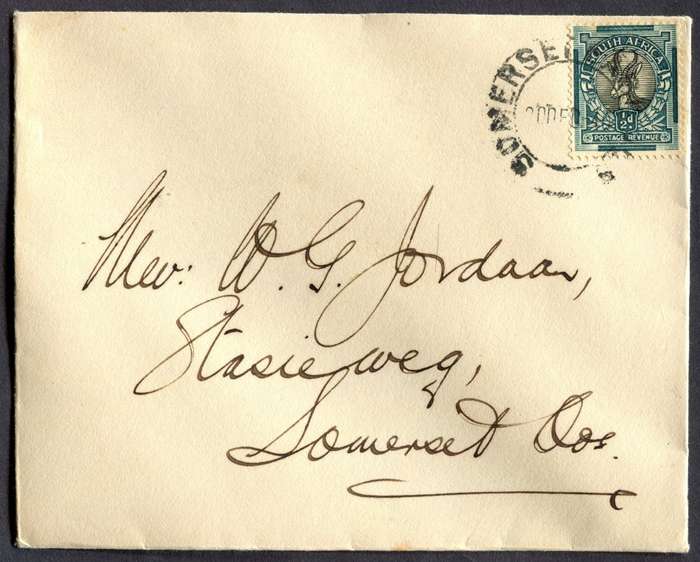 SOMERSE
SOUTH AFRICA
½d
POSTAGE REVENUE
Mev: W. G. Jordaan,
Stasie weg,
Somerset Oos.